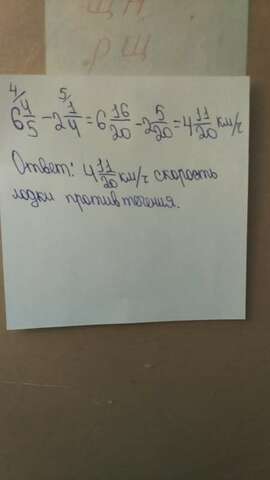 ЩА
РЩ
6 4/ 4/5 - 2 5/ 1/4 = 6 16/20 - 2 5/20 = 4 11/20 км/ч
Ответ: 4 11/20 км/ч скорость
лодки против течения.